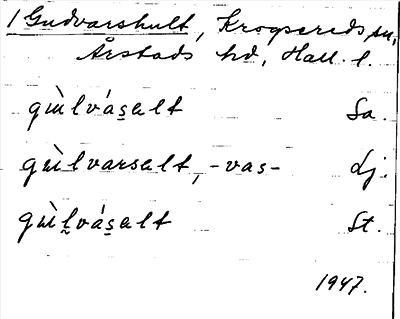 1 Gudvarshult, Krogsereds sn,
Årstads hd, Hall. l.
gùlvás̠alt Sa.
gùlvarsalt, -vas- Lj.
gùl̰vás̠alt St.
1947.